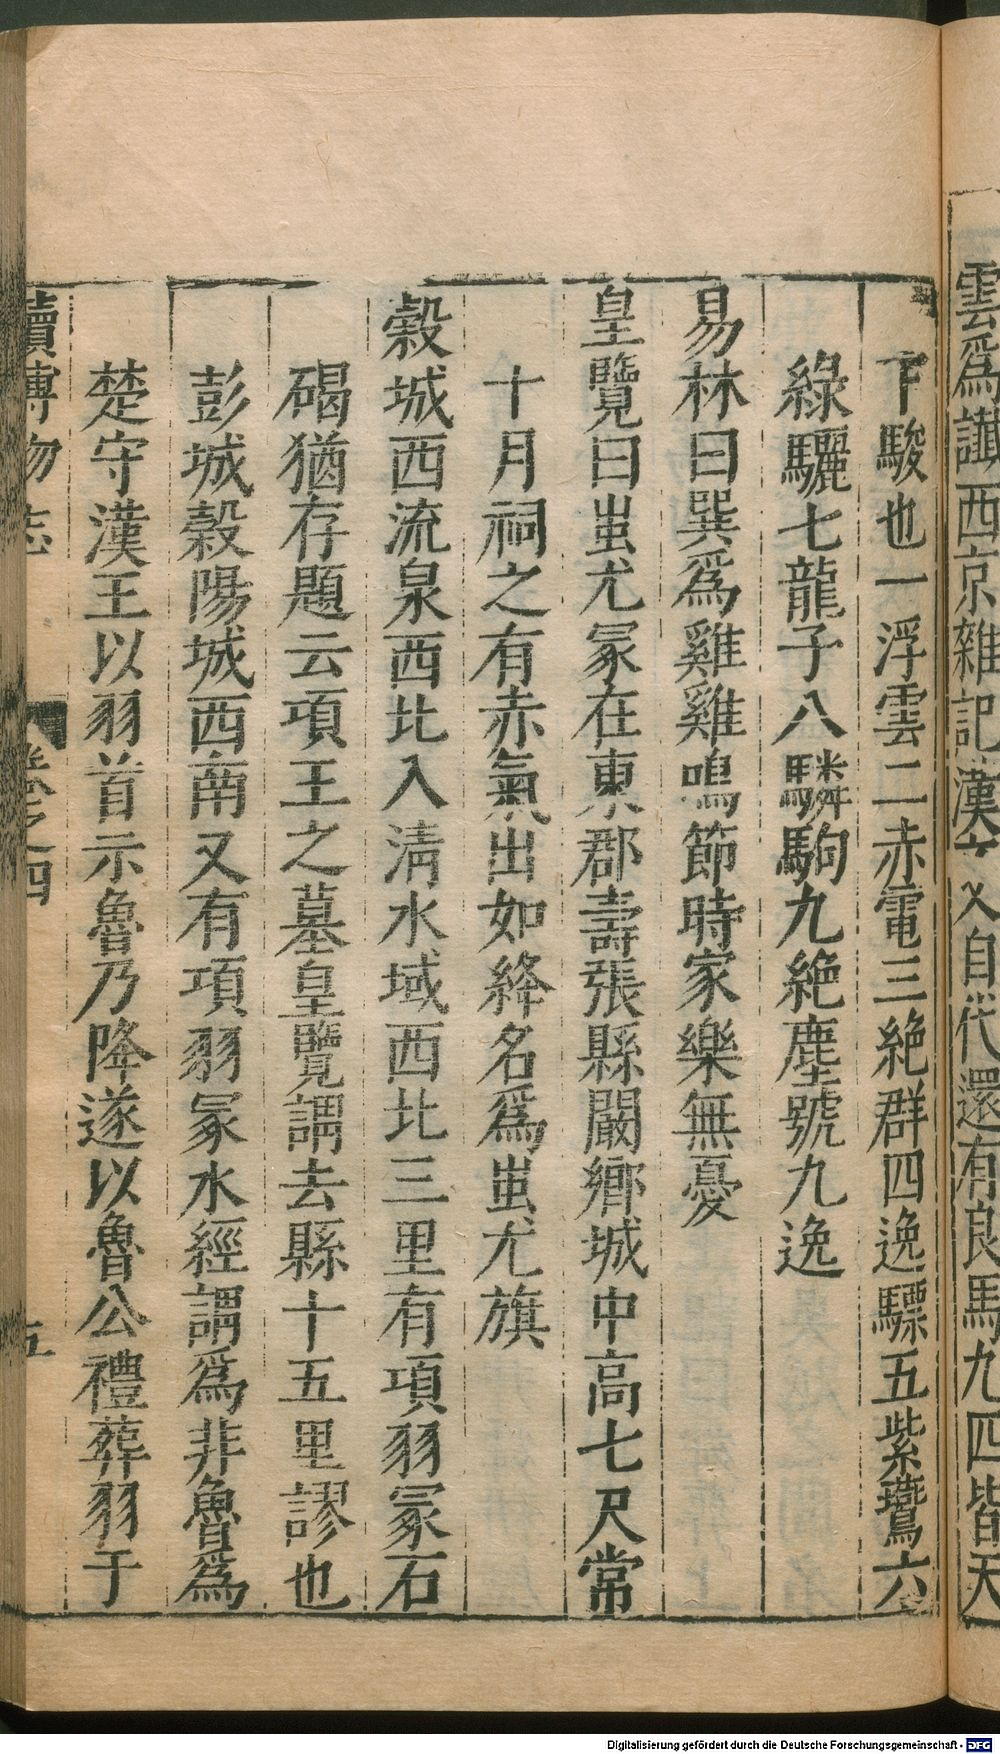 雲爲讖西京雜記漢文自代還有良馬九匹皆天
下駿也一浮雲二赤電三絶群四逸驃五紫鷰六
綠驪七龍子八驎駒九絶塵號九逸
易林曰巽爲雞雞鳴節時家樂無憂
皇覽曰蚩尤冢在東郡壽張縣闞鄉城中高七尺常
十月祠之有赤氣出如絳名爲蚩尤旗
穀城西流泉西北入清水域西北三里有項羽冢石
碣猶存題云項王之墓皇覽謂去縣十五里謬也
彭城穀陽城西南又有項羽冢水經謂爲非魯爲
楚守漢王以羽首示魯乃降遂以魯公禮葬羽于
續博物志 卷之四 五
Digitalisierung gefördert durch die Deutsche Forschungsgemeinschaft - DFG